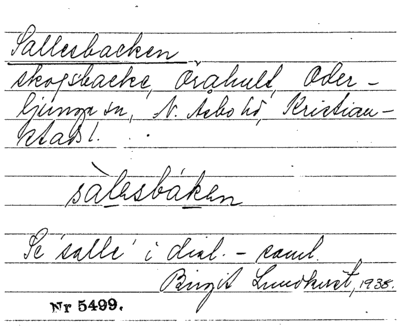 Sallesbacken
skogsbacke, Örahult, Oder-
ljunga sn, N. Åsbo hd, Kristian-
stads l.
sàlesbáken
Se 'salle' i dial.-saml.
Birgit Lundkvist, 1935.
Nr 5499.